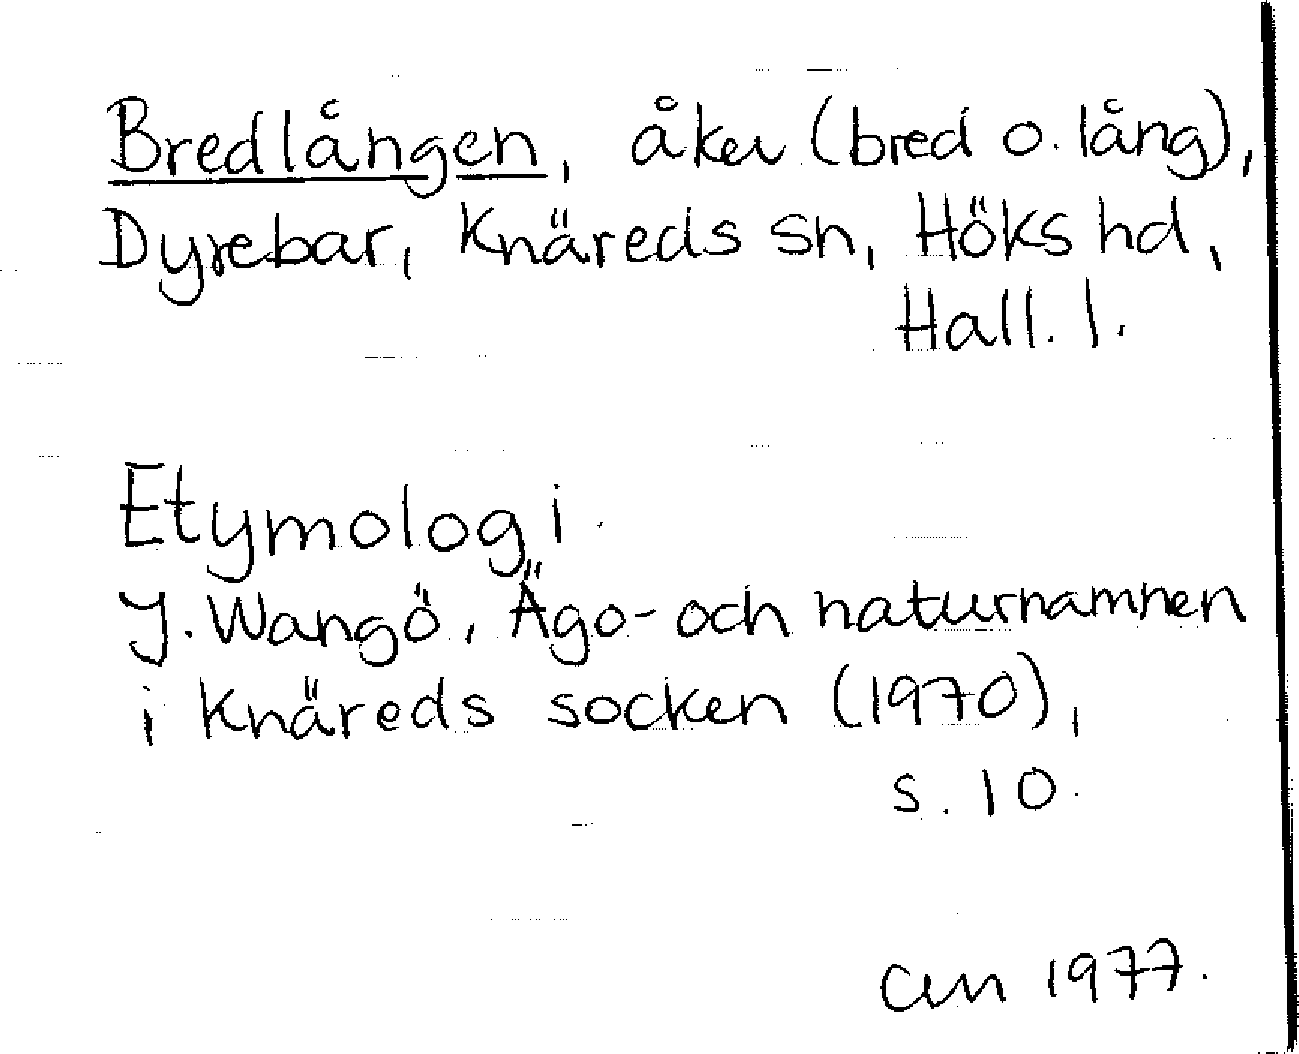 Bredlången, åker (bred o. lång),
Dyrebar, Knäreds sn, Höks hd,
Hall. l.
Etymologi
J. Wangö, Ägo- och naturnamnen
i Knäreds socken (1970),
s. 10.
1977.